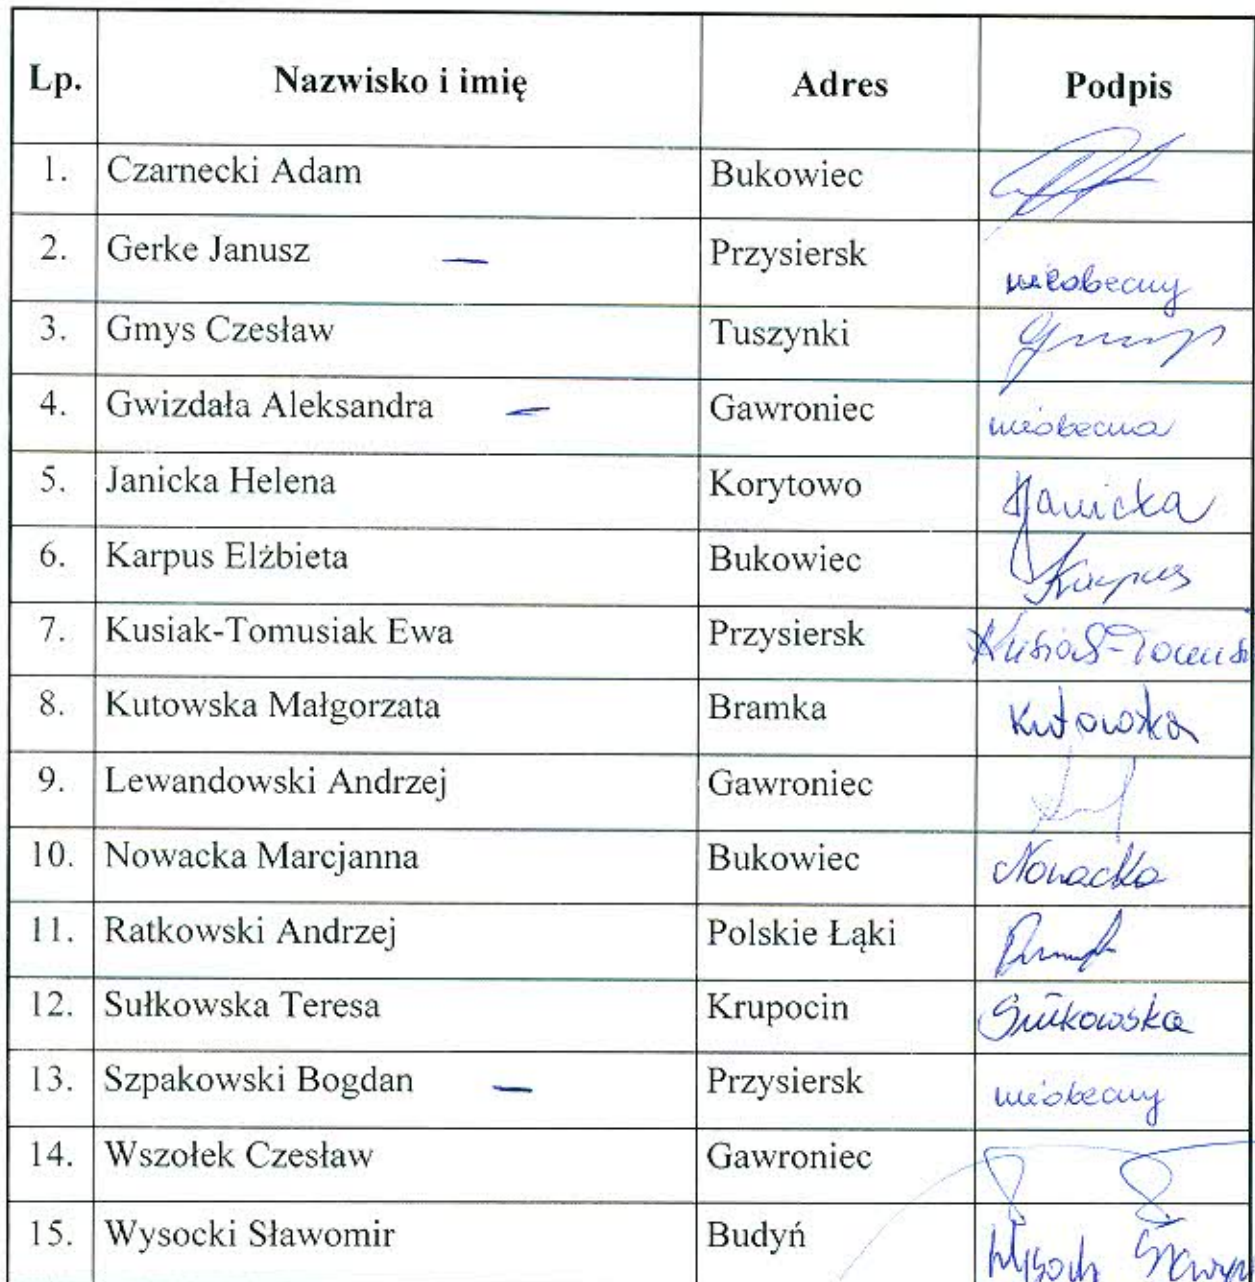 Lp. Nazwisko i imię Adres Podpis
1. Czarnecki Adam Bukowiec
2. Gerke Janusz — Przysiersk nieobecny
3. Gmys Czesław Tuszynki Gmys
4. Gwizdała Aleksandra — Gawroniec nieobecna
5. Janicka Helena Korytowo HJanicka
6. Karpus Elżbieta Bukowiec Karpus
7. Kusiak-Tomusiak Ewa Przysiersk
8. Kutowska Małgorzata Bramka Kutowska
9. Lewandowski Andrzej Gawroniec
10. Nowacka Marcjanna Bukowiec Nowacka
11. Ratkowski Andrzej Polskie Łąki
12. Sułkowska Teresa Krupocin Sułkowska
13. Szpakowski Bogdan — Przysiersk nieobecny
14. Wszołek Czesław Gawroniec
15. Wysocki Sławomir Budyń